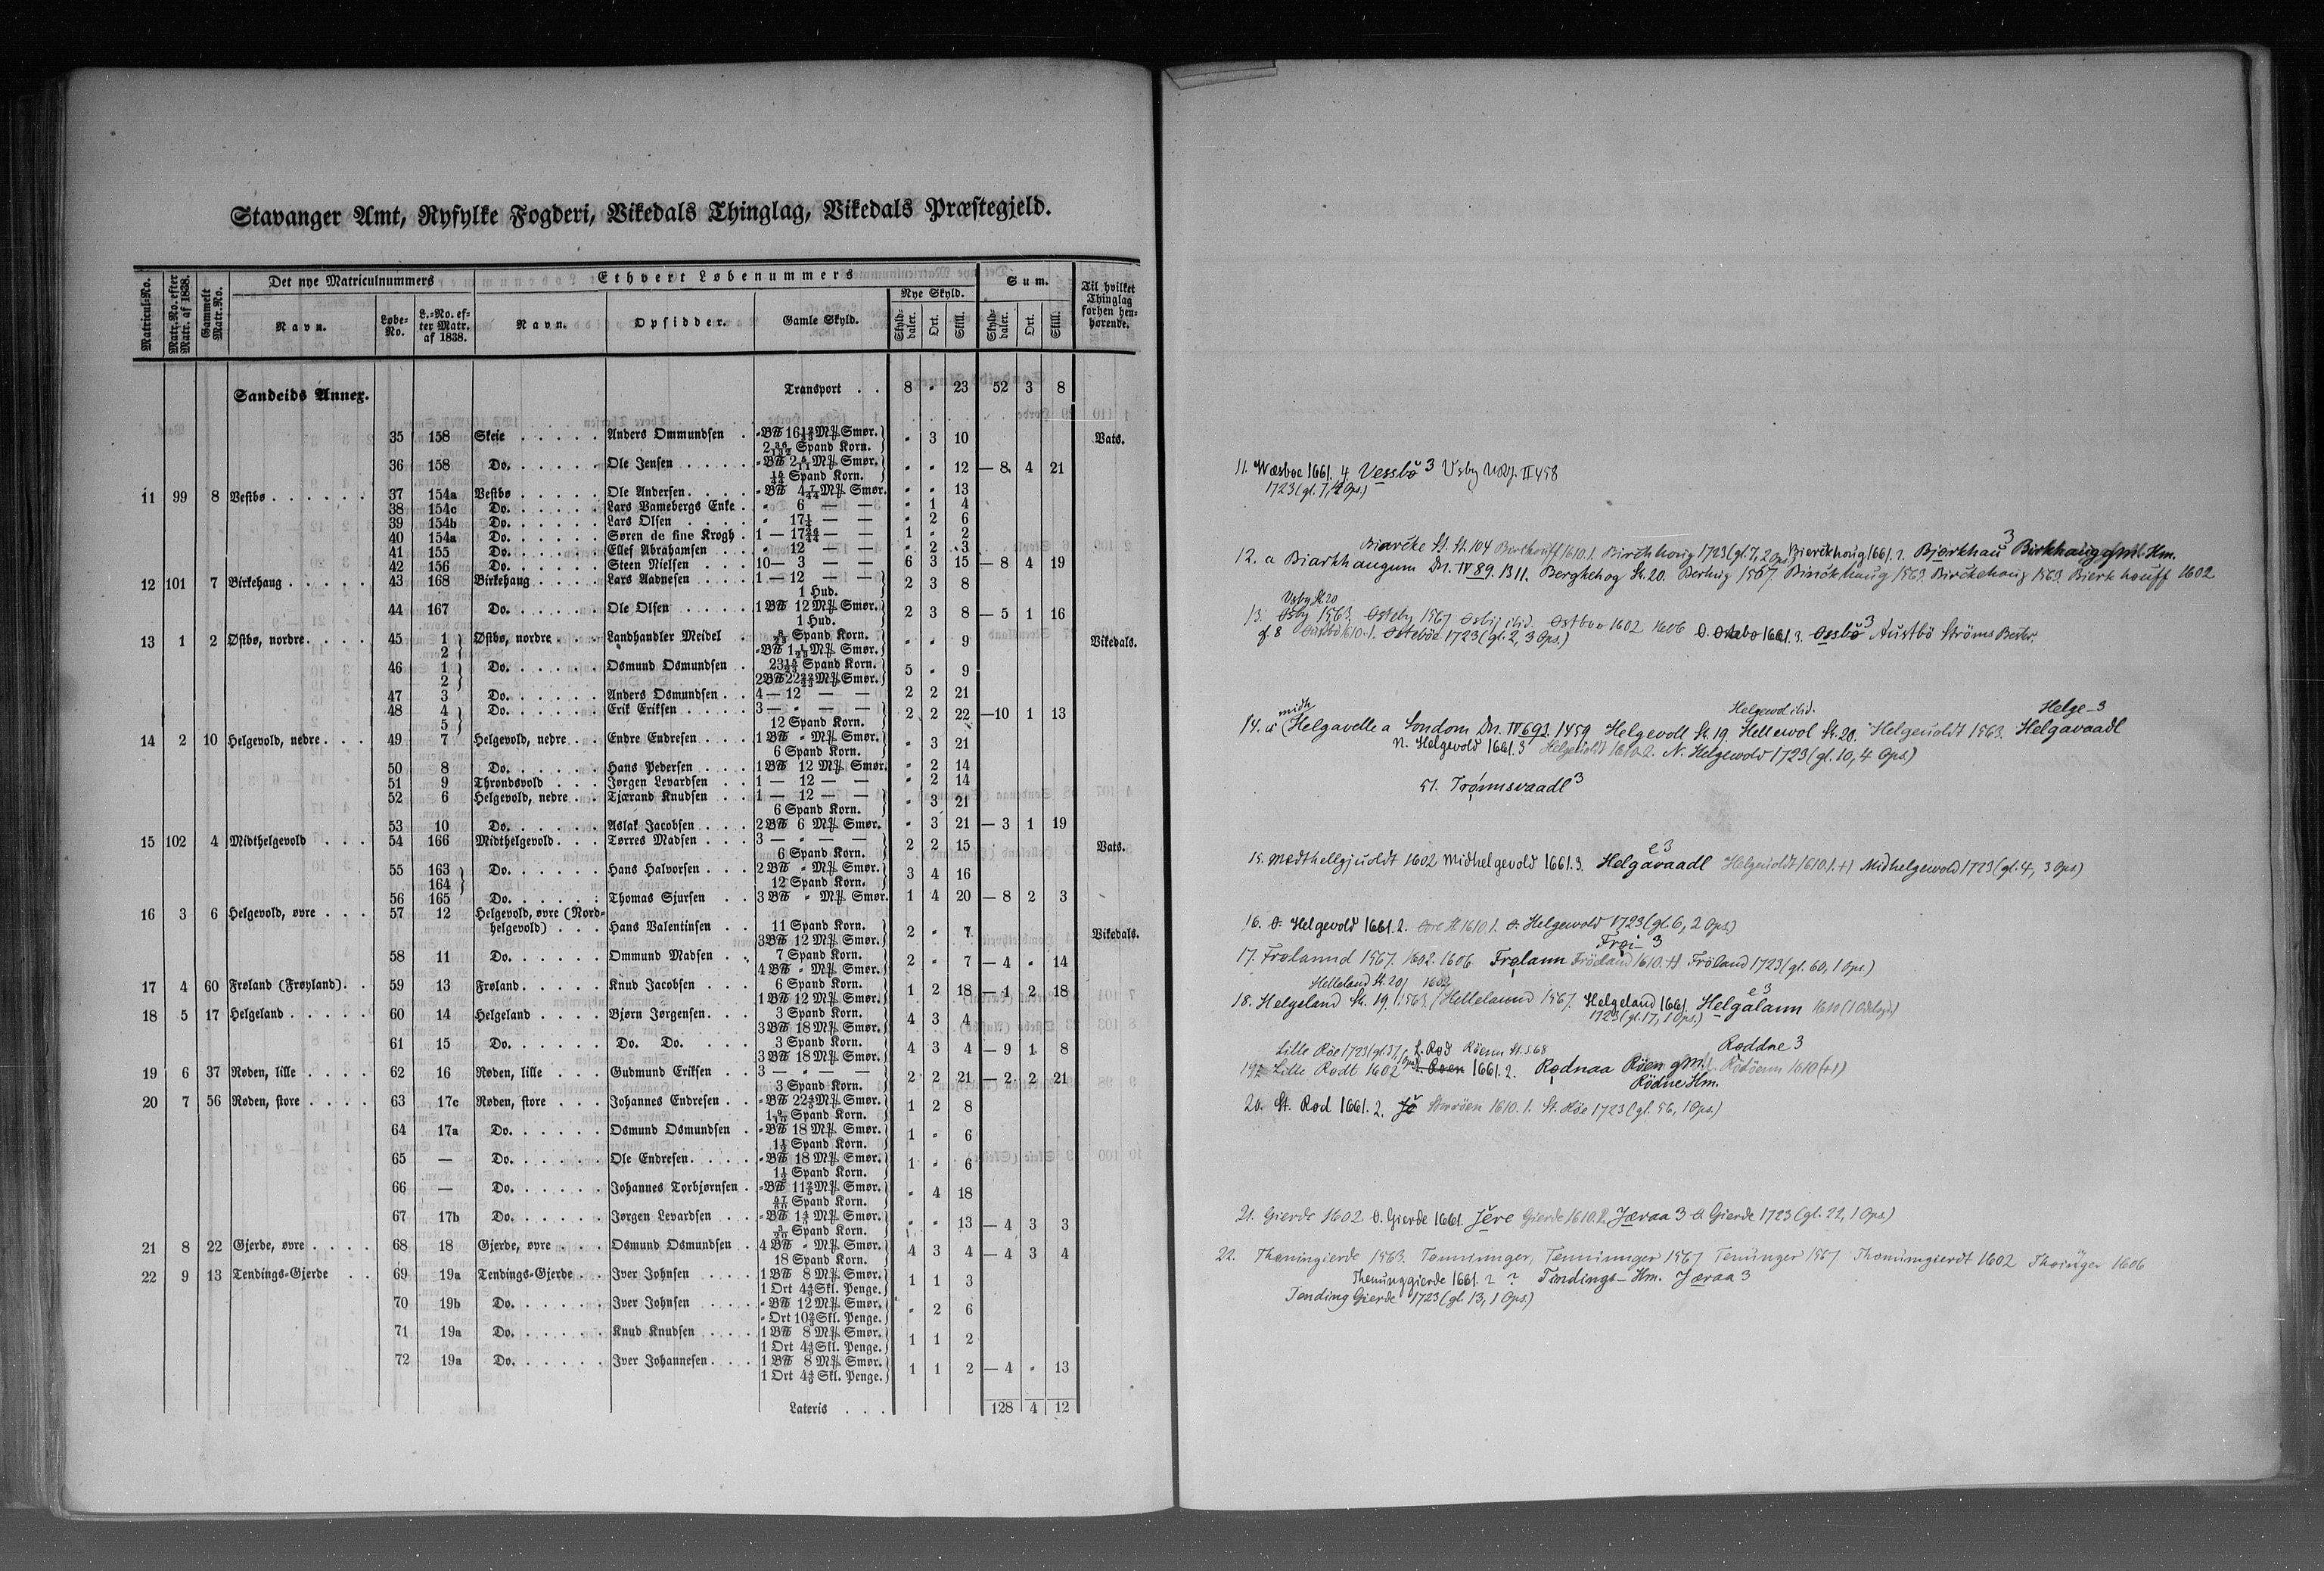 Stavanger Amt, Ryfylke Fogderi, Vikedals Thinglag, Vikedals Præstegjeld.
Matricul-No. | Matr.-No. efter Matr. af 1838. | Gammelt Matr.-No. | Det nye Matriculnummers | Ethvert Løbenummers | Sum. | Til hvilket Thinglag forhen henhørende.
Navn. | Løbe-No. | L.-No. efter Matr. af 1838. | Navn. | Opsidder. | Gamle Skyld. | Nye Skyld. | Skylddaler. | Ort. | Skill. | Skylddaler. | Ort. | Skill.
Sandeids Annex. Transport . . 8 - 23 52 3 8
35 158 Skeie . . . . . Anders Ommundsen . Smør. - 3 10 Vats.
Spand Korn.
36 158 Do. . . . . . Ole Jensen . . . . . Smør. - - 12 — 8 4 21
Spand Korn.
11 99 8 Vestbø . . . . . . 37 154a Vestbø . . . . . Ole Andersen. . . . Smør. - - 13
38 154c Do. . . . . . Lars Vamebergs Enke . - 6 — — - 1 4
39 154b Do. . . . . . Lars Olsen . . . . - 17½ — — - 2 6
40 154a Do. . . . . . Søren de fine Krogh . 1 — — — 1 - 2
41 155 Do. . . . . . Ellef Abrahamsen . . . - 12 — — - 2 3
42 156 Do. . . . . . Steen Nielsen . . . 10 — 3 — — 6 3 15 — 8 4 19
12 101 7 Birkehaug . . . . . 43 168 Birkehaug . . . . Lars Aadnesen . . . . 1 — 12 — — 2 3 8
1 Hud.
44 167 Do. . . . . . Ole Olsen . . . . . 1 BPd 12 Mkr Smør. 2 3 8 — 5 1 16
1 Hud.
13 1 2 Østbø, nordre. . . . 45 1 Østbø, nordre . . . Landhandler Meidel . Spand Korn. - - 9 Vikedals.
2 Smør.
46 1 Do. . . . . . Osmund Osmundsen . Spand Korn. 5 - 9
2 Smør.
47 3 Do. . . . . . Anders Osmundsen . . 4 — 12 — — 2 2 21
48 4 Do. . . . . . Erik Eriksen . . . . 3 — - — — 2 2 22 —10 1 13
5 12 Spand Korn.
14 2 10 Helgevold, nedre. . . 49 7 Helgevold, nedre . . Endre Endresen . . . 1 BPd - Mkr Smør. - 3 21
6 Spand Korn.
50 8 Do. . . . . . Hans Pedersen . . . 1 BPd 12 Mkr Smør. - 2 14
51 9 Throndsvold . . . Jørgen Levardsen . . 1 — 12 — — - 2 14
52 6 Helgevold, nedre . . Tjærand Knudsen . . 1 — 12 — — - 3 21
6 Spand Korn.
53 10 Do. . . . . . Aslak Jacobsen . . . 2 BPd 6 Mkr Smør. - 3 21 — 3 1 19
15 102 4 Midthelgevold . . . 54 166 Midthelgevold. . . Tørres Madsen . . . 3 — - — — 2 2 15 Vats.
6 Spand Korn.
55 163 Do. . . . . . Hans Halvorsen . . . 2 BPd - Mkr Smør. 3 4 16
164 12 Spand Korn.
56 165 Do. . . . . . Thomas Sjursen . . 3 BPd - Mkr Smør. 1 4 20 — 8 2 3
16 3 6 Helgevold, øvre . . . 57 12 Helgevold, øvre (Nord-
helgevold) . . . Hans Valentinsen . . 11 Spand Korn. 2 - 7 Vikedals.
3 BPd 12 Mkr Smør.
58 11 Do. . . . . . Ommund Madsen . . 7 Spand Korn. 2 - 7 — 4 - 14
4 BPd - Mkr Smør.
17 4 60 Frøland (Frøyland). . 59 13 Frøland. . . . . Knud Jacobsen . . . 6 Spand Korn. 1 2 18 — 1 2 18
1 BPd 12 Mkr Smør.
18 5 17 Helgeland . . . . . 60 14 Helgeland . . . . Bjørn Jørgensen. . . 3 Spand Korn. 4 3 4
3 BPd 18 Mkr Smør.
61 15 Do. . . . . . Do. Do. . . . 3 Spand Korn. 4 3 4 — 9 1 8
3 BPd 18 Mkr Smør.
19 6 37 Røden, lille . . . . 62 16 Røden, lille . . . Gudmund Eriksen . . 3 — - — — 2 2 21 — 2 2 21
3 Spand Korn.
20 7 56 Røden, store . . . . 63 17c Røden, store . . . Johannes Endresen . . Smør. 1 2 8
Spand Korn.
64 17a Do. . . . . . Osmund Osmundsen . - BPd 18 Mkr Smør. 1 - 6
Spand Korn.
65 — Do. . . . . . Ole Endresen. . . . - BPd 18 Mkr Smør. 1 - 6
Spand Korn.
66 — Do. . . . . . Johannes Torbjørnsen . Smør. - 4 18
Spand Korn.
67 17b Do. . . . . . Jørgen Levardsen . . Smør. - - 13 — 4 3 3
Spand Korn.
21 8 22 Gjerde, øvre . . . . 68 18 Gjerde, øvre . . . Osmund Osmundsen . 4 BPd - Mkr Smør. 4 3 4 — 4 3 4
18 Spand Korn.
22 9 13 Tendings-Gjerde . . 69 19a Tendings-Gjerde . . Iver Johnsen . . . . 1 BPd 8 Mkr Smør. 1 1 3
1 Ort Skl. Penge.
70 19b Do. . . . . . Iver Johnsen . . . . - BPd 12 Mkr Smør. - 2 6
- Ort Skl. Penge.
71 19a Do. . . . . . Knud Knudsen . . . . 1 BPd 8 Mkr Smør. 1 1 2
1 Ort Skl. Penge.
72 19a Do. . . . . . Iver Johannesen. . . 1 BPd 8 Mkr Smør. 1 1 2 — 4 - 13
1 Ort Skl. Penge.
Lateris . . . 128 4 12
11. Wæsboe 1661. 4 Vessbö 3 Usby II 458
1723 (gl. 7, Ops.)
Biarcke St. 104 1610.1. Birchhoug 1723 (gl. 7, 2 Ops.) Bierckhoug 1661. 2. Bjørkhau 3 Birkhaug Hm.
12. a Biarkhaugum Dn. IV 89. 1311. Berghehog St. 20. 1567 Birckhaug 1563. Birckehaug 1563. Bierkhouff 1602
Usby St. 20
13. Osby 1563. Osteby 1567 Osby ibid. Ostboe 1602 1606 1661. 3. Ossbö 3 Austbö Ströms
gl. 8 1610.1. Osteböe 1723 (gl. 2, 3 Ops.)
midh Helgewol ibid. Helge-3
14. a Helgavelle a Sondom Dn. IV 693. 1459 Helgevoll St. 19. Hellewol St. 20. Helgeuoldt 1563. Helgavaadl
N. Helgevold 1661. 3 Helgeuoldt 1610.2. N. Helgewold 1723 (gl. 10, 4 Ops.)
51. Trømmsvaadl 3
e 3
15. Medthellgjeuoldt 1602 Midhelgevold 1661. 3. Helgavaadl Helgeuoldt 1610.1. Midhelgewold 1723 (gl. 4, 3 Ops.)
16. Ø. Helgevold 1661. 2. 1610 1. Ø. Helgewold 1723 (gl. 6, 2 Ops.)
Frøi- 3
17. Frølannd 1567. 1602. 1606 Frølann Fröeland 1610. Fröland 1723 (gl. 60, 1 Ops.)
Helleland St. 20 1602
18. Helgeland St. 19. 1563. Hellelannd 1567. Helgeland 1661 Helgalann e 3 1610
1723 (gl. 17, 1 Ops.)
Lille Röe 1723 (gl. 37, 1 Ops.) L. Rød Röenn St. S. 68 Røddne 3
19. Lille Rødt 1602 L. Røen 1661. 2. Rødnaa Röen 1610
Rödne Hm.
20. St. Rød 1661. 2. Storröen 1610. 1. St. Röe 1723 (gl. 56, 1 Ops.)
21. Gierde 1602 O. Gierde 1661. Jere Gierde 1610. Jæraa 3 O. Gierde 1723 (gl. 22, 1 Ops.)
22. Thenningierde 1563. Tenninnger, Tenninnger 1567 Tenünger 1567 Thenningierdt 1602 Thenüger 1606
Thenunggierde 1661. 2 ? Tendings- Hm. Jæraa 3
Tending Gierde 1723 (gl. 13, 1 Ops.)